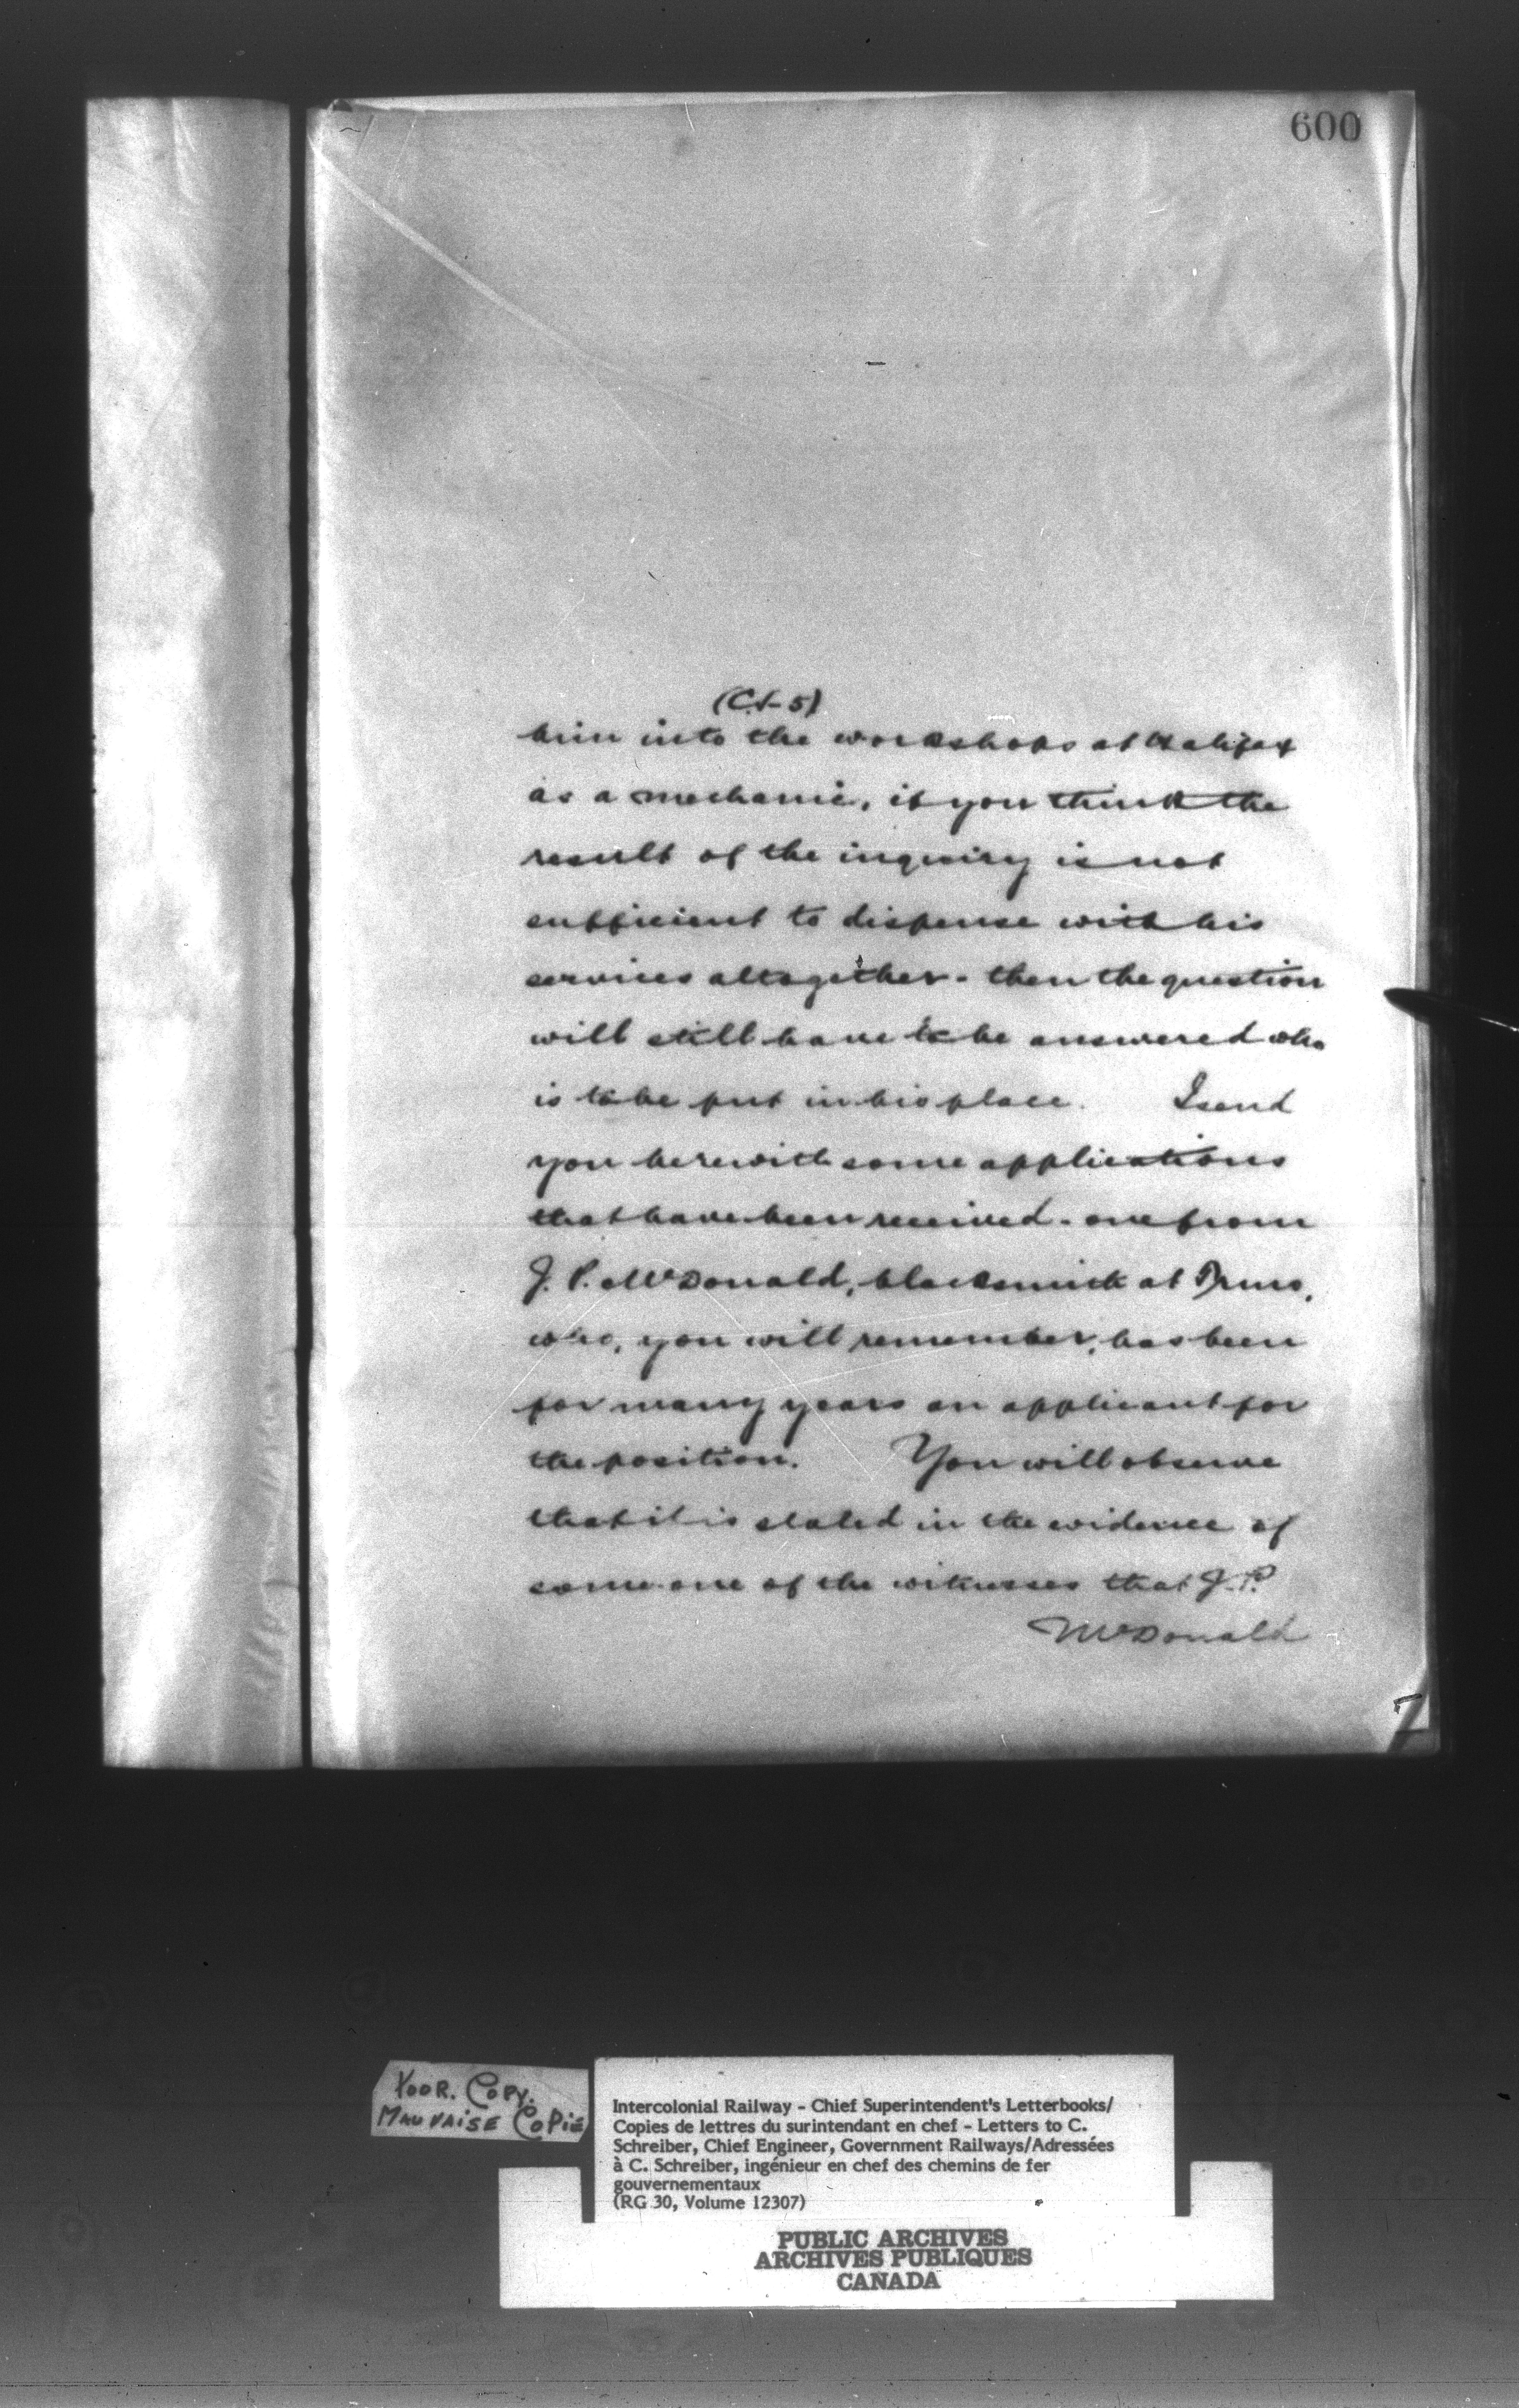 600
(C.S-5)
him into the workshops at Halifax
as a mechanic, if you think the
result of the inquiry is not
sufficient to dispense with his
services altogether - then the question
will still have to be answered who
is to be put in his place. I send
you herewith some applications
that have been received - one from
J. P. McDonald, blacksmith at Truro,
who, you will remember, has been
for many years an applicant for
the position. You will observe
that it is stated in the evidence of
some one of the witnesses that J. P.
McDonald
POOR. COPY.
MAUVAISE COPIE
Intercolonial Railway - Chief Superintendent's Letterbooks/
Copies de lettres du surintendant en chef - Letters to C.
Schreiber, Chief Engineer, Government Railways/Adressées
à C. Schreiber, ingénieur en chef des chemins de fer
gouvernementaux
(RG 30, Volume 12307)
PUBLIC ARCHIVES
ARCHIVES PUBLIQUES
CANADA